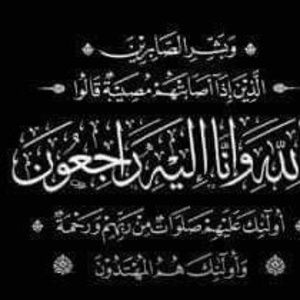 وَبَشِّرِ الصَّابِرِينَ
الَّذِينَ إِذَا أَصَابَتْهُمْ مُصِيبَةٌ قَالُوا
لِلَّهِ وَإِنَّا إِلَيْهِ رَاجِعُونَ
أُولَئِكَ عَلَيْهِمْ صَلَوَاتٌ مِنْ رَبِّهِمْ وَرَحْمَةٌ
وَأُولَئِكَ هُمُ الْمُهْتَدُونَ